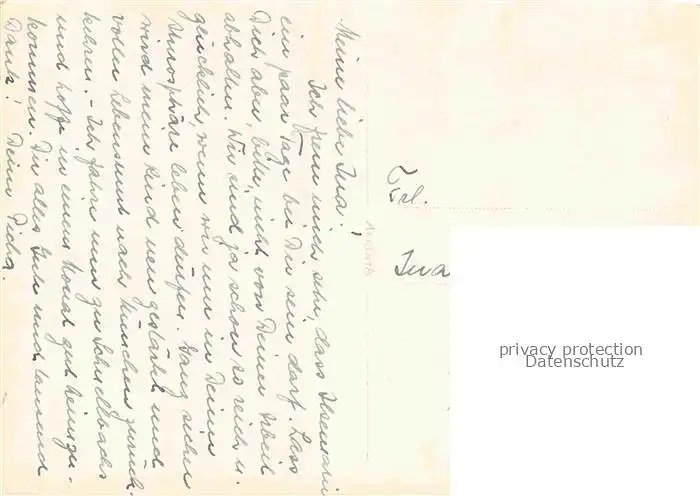 Meine liebe Ina!
Ich freue mich sehr, dass Ilsemarie
ein paar Tage bei Dir sein darf. Lass
Dich aber, bitte, nicht von Deiner Arbeit
abhalten. Wir sind ja schon so reich u.
glücklich, wenn wir nur in Deiner
Atmosphäre leben dürfen. Ganz sicher
wird mein Kind neu gestärkt und
voller Lebensmut nach München zurück-
kehren. - Ich fahre nun zu
und hoffe in einem Monat gut heimzu-
kommen. Dir alles Gute und tausend
Dank! Deine
Frl.
Ina
privacy protection
Datenschutz